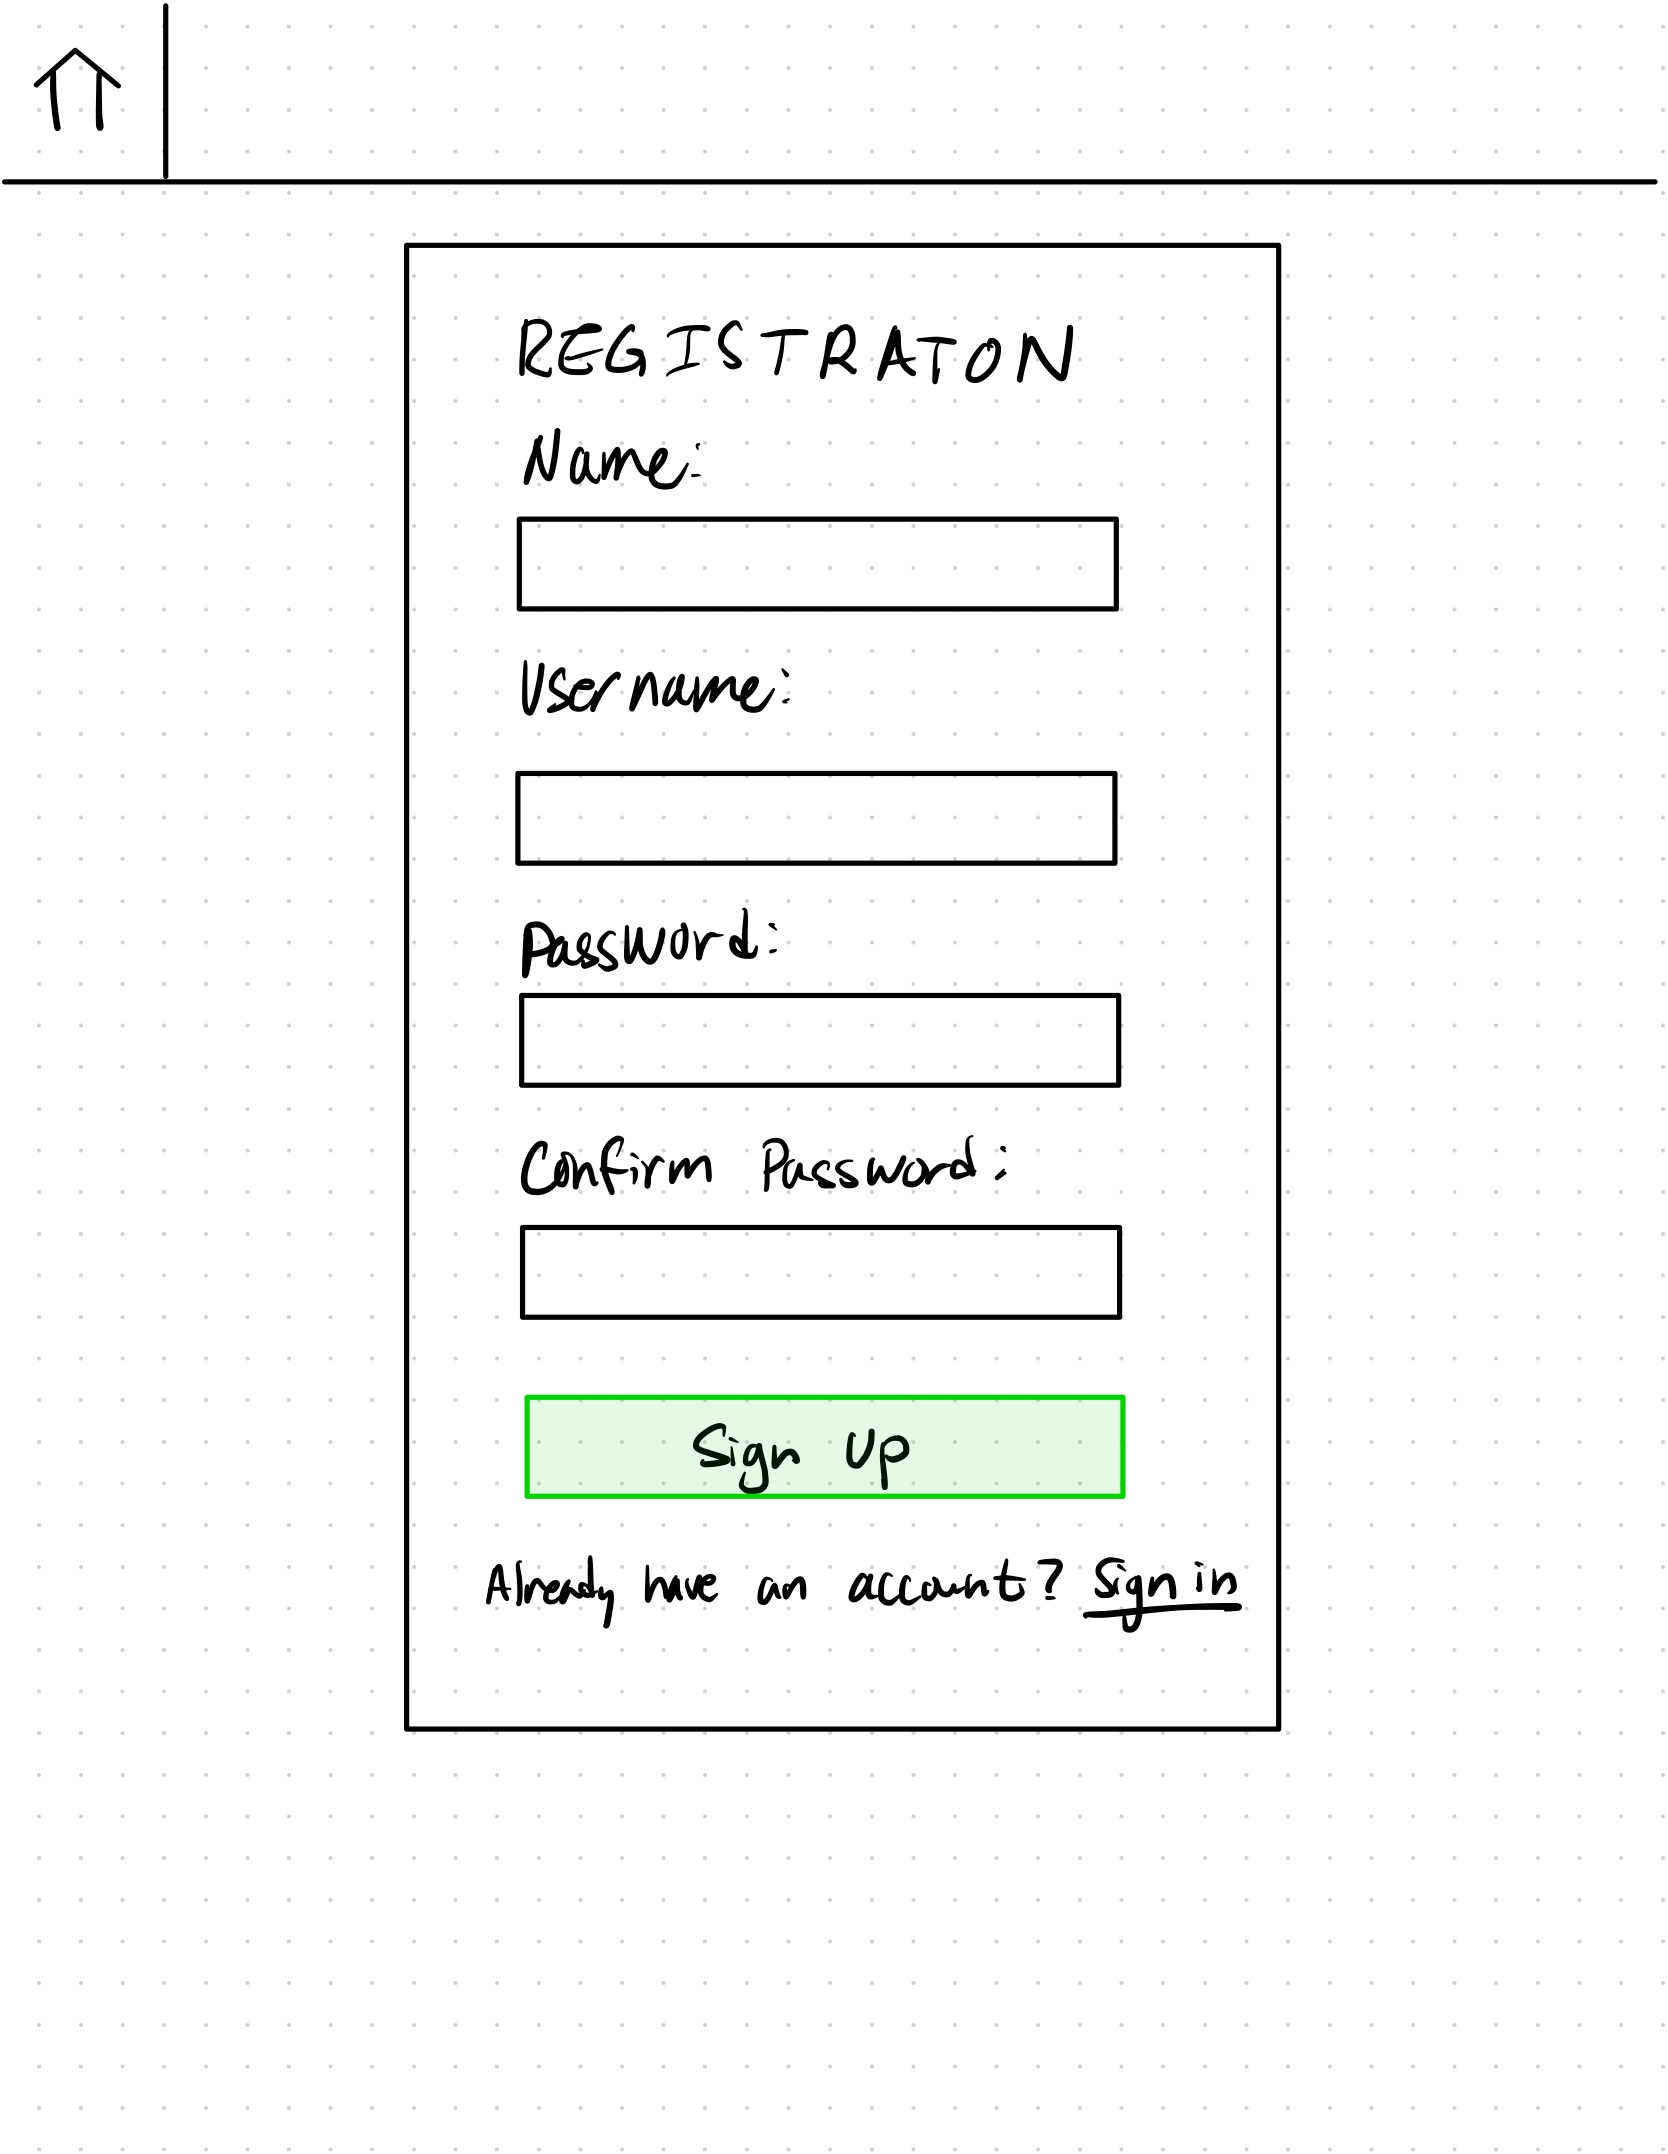 REGISTRATON
Name:
Username:
Password:
Confirm Password:
Sign Up
Already have an account? Sign in